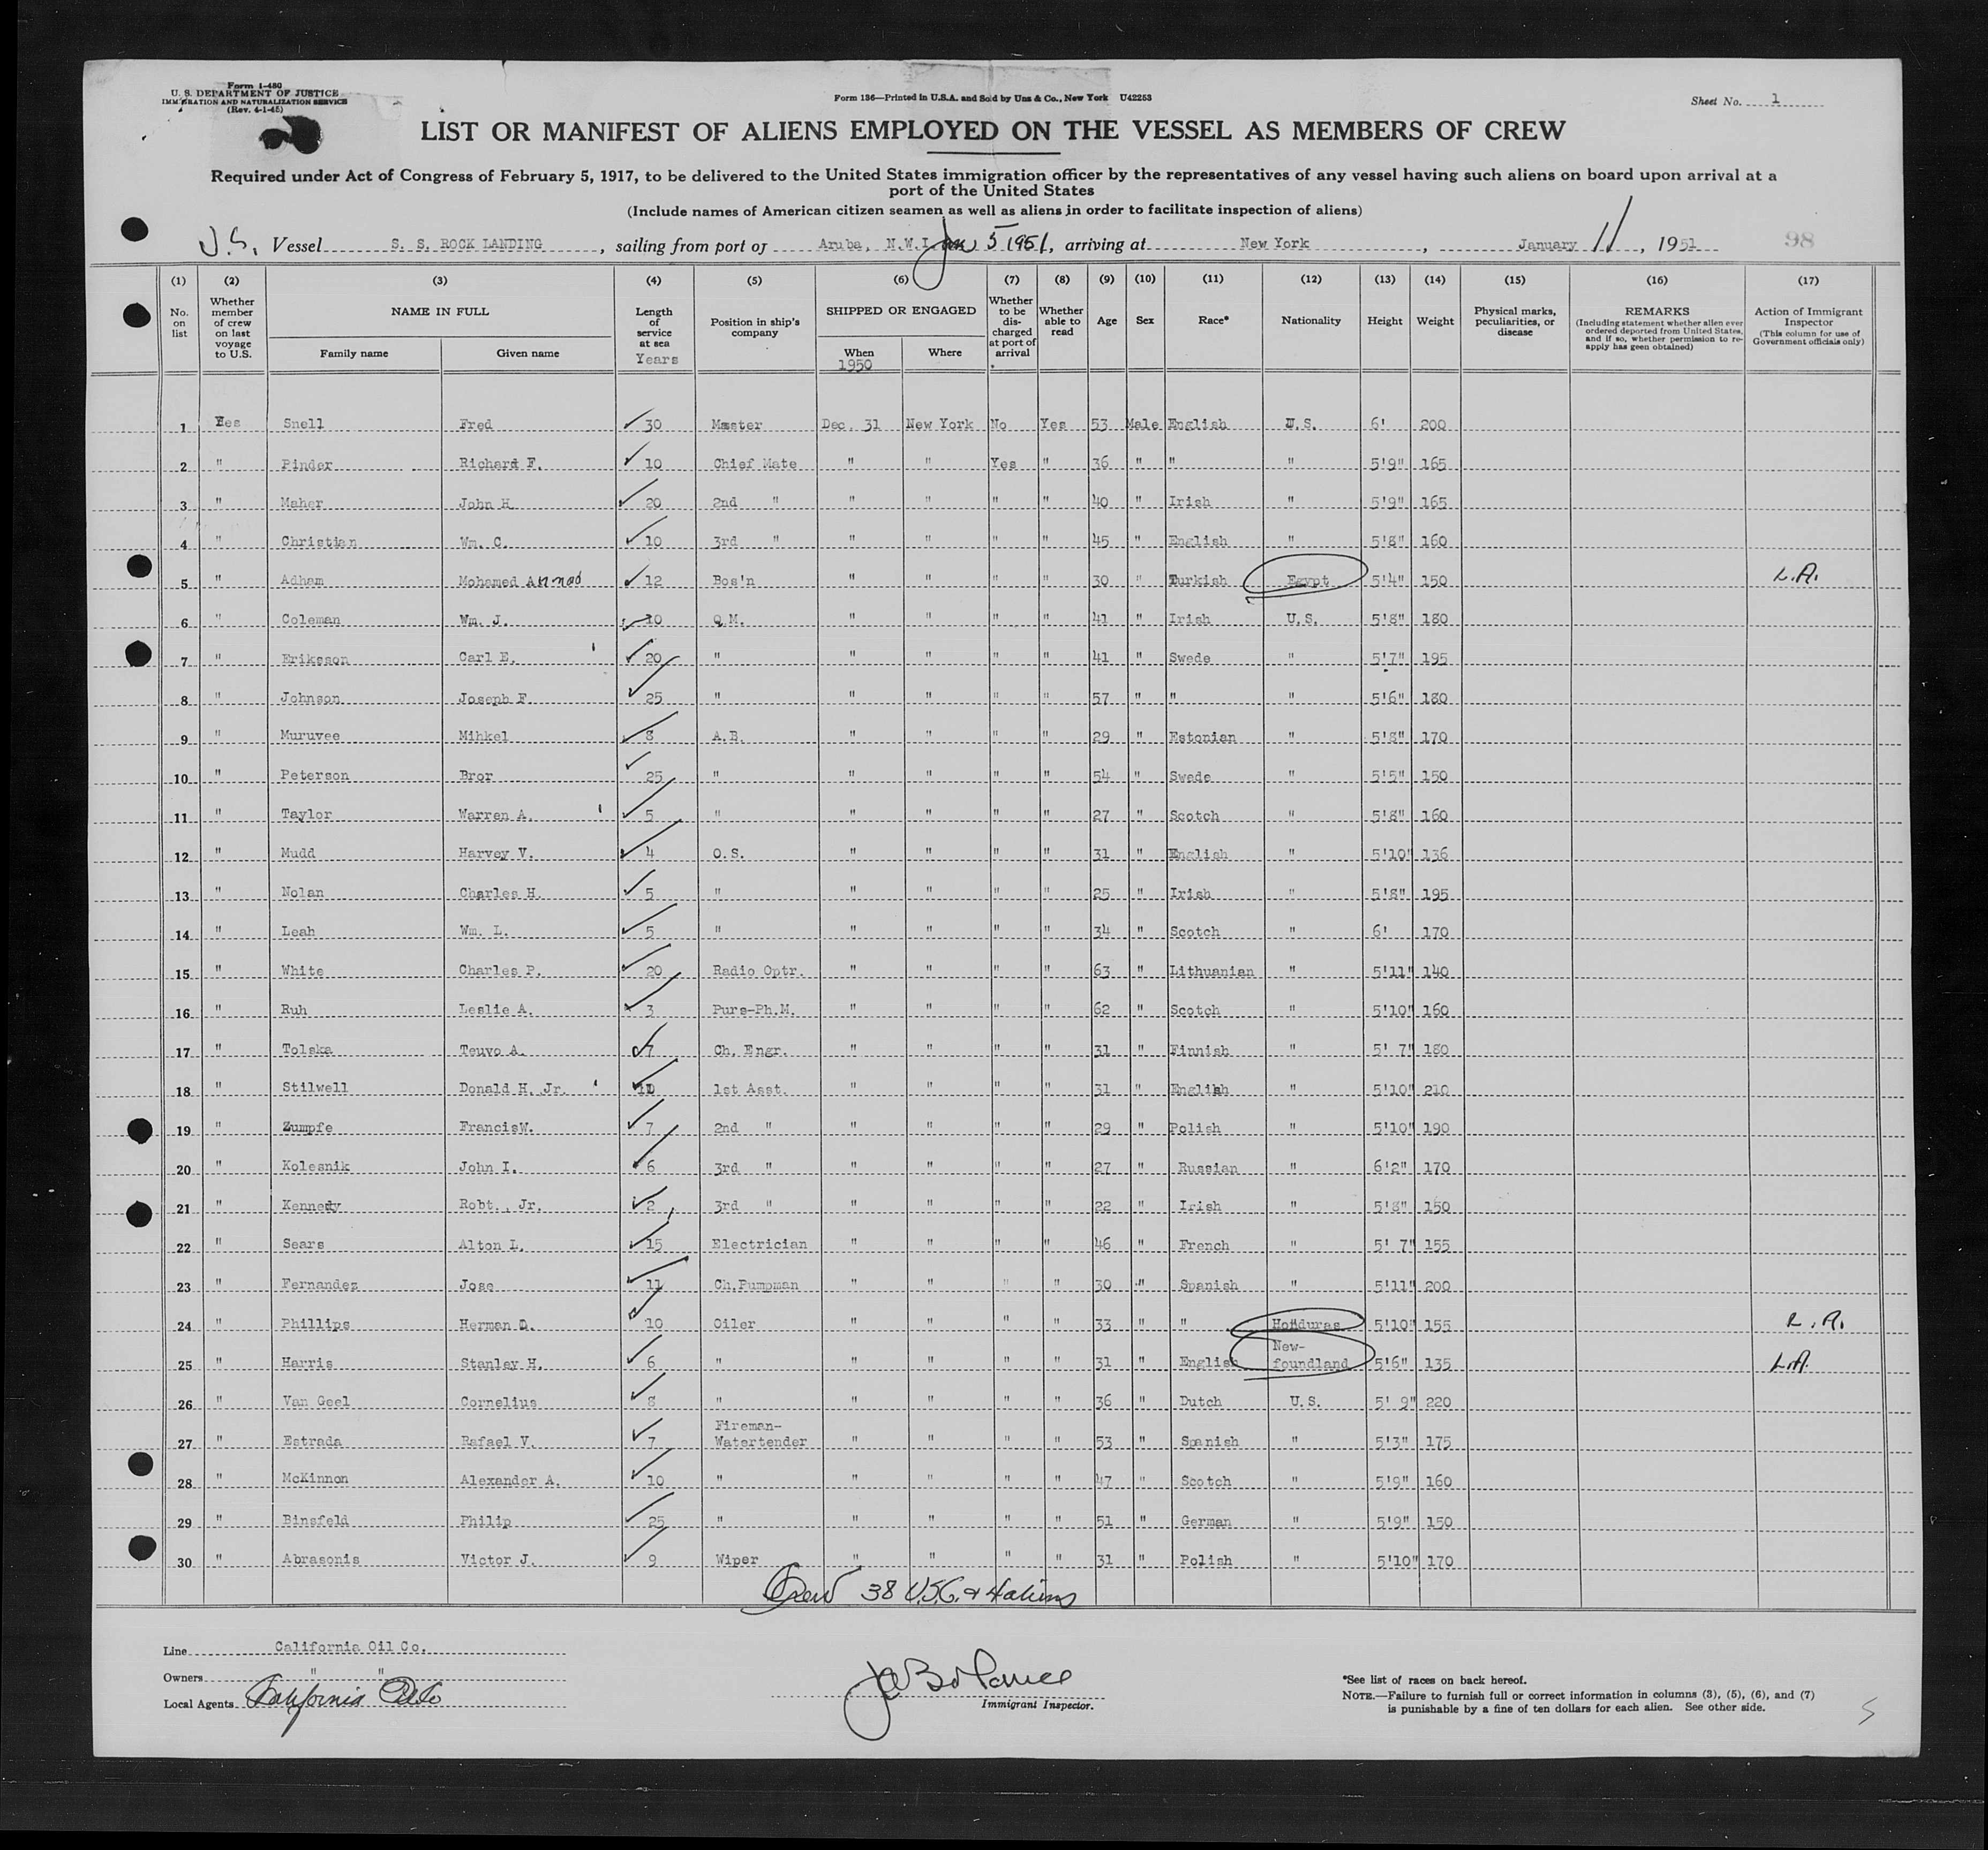 Form I-480
U. S. DEPARTMENT OF JUSTICE
IMMIGRATION AND NATURALIZATION SERVICE
(Rev. 4-1-45)
Form 136—Printed in U.S.A. and Sold by Unz & Co., New York U42253
Sheet No. 1
LIST OR MANIFEST OF ALIENS EMPLOYED ON THE VESSEL AS MEMBERS OF CREW
Required under Act of Congress of February 5, 1917, to be delivered to the United States immigration officer by the representatives of any vessel having such aliens on board upon arrival at a
port of the United States
(Include names of American citizen seamen as well as aliens in order to facilitate inspection of aliens)
U.S. Vessel S. S. ROCK LANDING, sailing from port of Aruba, N.W.I. Jan 5 1951, arriving at New York, January 11, 1951 98
(1) No. on list (2) Whether member of crew on last voyage to U.S. (3) NAME IN FULL Family name Given name (4) Length of service at sea Years (5) Position in ship's company (6) SHIPPED OR ENGAGED When 1950 Where (7) Whether to be discharged at port of arrival (8) Whether able to read (9) Age (10) Sex (11) Race* (12) Nationality (13) Height (14) Weight (15) Physical marks, peculiarities, or disease (16) REMARKS (Including statement whether alien ever ordered deported from United States, and if so, whether permission to re-apply has geen obtained) (17) Action of Immigrant Inspector (This column for use of Government officials only)
1 Yes Snell Fred 30 Master Dec. 31 New York No Yes 53 Male English U.S. 6' 200
2 " Pinder Richard F. 10 Chief Mate " " Yes " 36 " " " 5'9" 165
3 " Maher John H. 20 2nd " " " " " 40 " Irish " 5'9" 165
4 " Christian Wm. C. 10 3rd " " " " " 45 " English " 5'8" 160
5 " Adham Mohamed 12 Bos'n " " " " 30 " Turkish Egypt 5'4" 150 L.A.
6 " Coleman Wm. J. 10 Q.M. " " " " 41 " Irish U.S. 5'8" 180
7 " Eriksson Carl E. 20 " " " " " 41 " Swede " 5'7" 195
8 " Johnson Joseph F. 25 " " " " " 57 " " " 5'6" 180
9 " Muruvee Mihkel 8 A.B. " " " " 29 " Estonian " 5'8" 170
10 " Peterson Bror 25 " " " " " 54 " Swede " 5'5" 150
11 " Taylor Warren A. 5 " " " " " 27 " Scotch " 5'8" 160
12 " Mudd Harvey V. 4 O.S. " " " " 31 " English " 5'10" 136
13 " Nolan Charles H. 5 " " " " " 25 " Irish " 5'8" 195
14 " Leah Wm. L. 5 " " " " " 34 " Scotch " 6' 170
15 " White Charles P. 20 Radio Optr. " " " " 63 " Lithuanian " 5'11" 140
16 " Ruh Leslie A. 3 Purs-Ph.M. " " " " 62 " Scotch " 5'10" 160
17 " Tolska Teuvo A. 7 Ch. Engr. " " " " 31 " Finnish " 5' 7" 180
18 " Stilwell Donald H. Jr. 1st Asst. " " " " 31 " English " 5'10" 210
19 " Zumpfe FrancisW. 7 2nd " " " " " 29 " Polish " 5'10" 190
20 " Kolesnik John I. 6 3rd " " " " " 27 " Russian " 6'2" 170
21 " Kennedy Robt., Jr. 2 3rd " " " " " 22 " Irish " 5'8" 150
22 " Sears Alton L. 15 Electrician " " " " 46 " French " 5' 7" 155
23 " Fernandez Jose 11 Ch.Pumpman " " " " 30 " Spanish " 5'11" 200
24 " Phillips Herman D. 10 Oiler " " " " 33 " " Honduras 5'10" 155 L.A.
25 " Harris Stanley H. 6 " " " " " 31 " English New-foundland 5'6" 135 L.A.
26 " Van Geel Cornelius 8 " " " " " 36 " Dutch U.S. 5' 9" 220
27 " Estrada Rafael V. 7 Fireman-Watertender " " " " 53 " Spanish " 5'3" 175
28 " McKinnon Alexander A. 10 " " " " " 47 " Scotch " 5'9" 160
29 " Binsfeld Philip 25 " " " " " 51 " German " 5'9" 150
30 " Abrasonis Victor J. 9 Wiper " " " " 31 " Polish " 5'10" 170
Crew 38 U.S.C. & 4 aliens
Line California Oil Co.
Owners " "
Local Agents California Oil Co
Immigrant Inspector.
*See list of races on back hereof.
NOTE.—Failure to furnish full or correct information in columns (3), (5), (6), and (7)
is punishable by a fine of ten dollars for each alien. See other side.
5